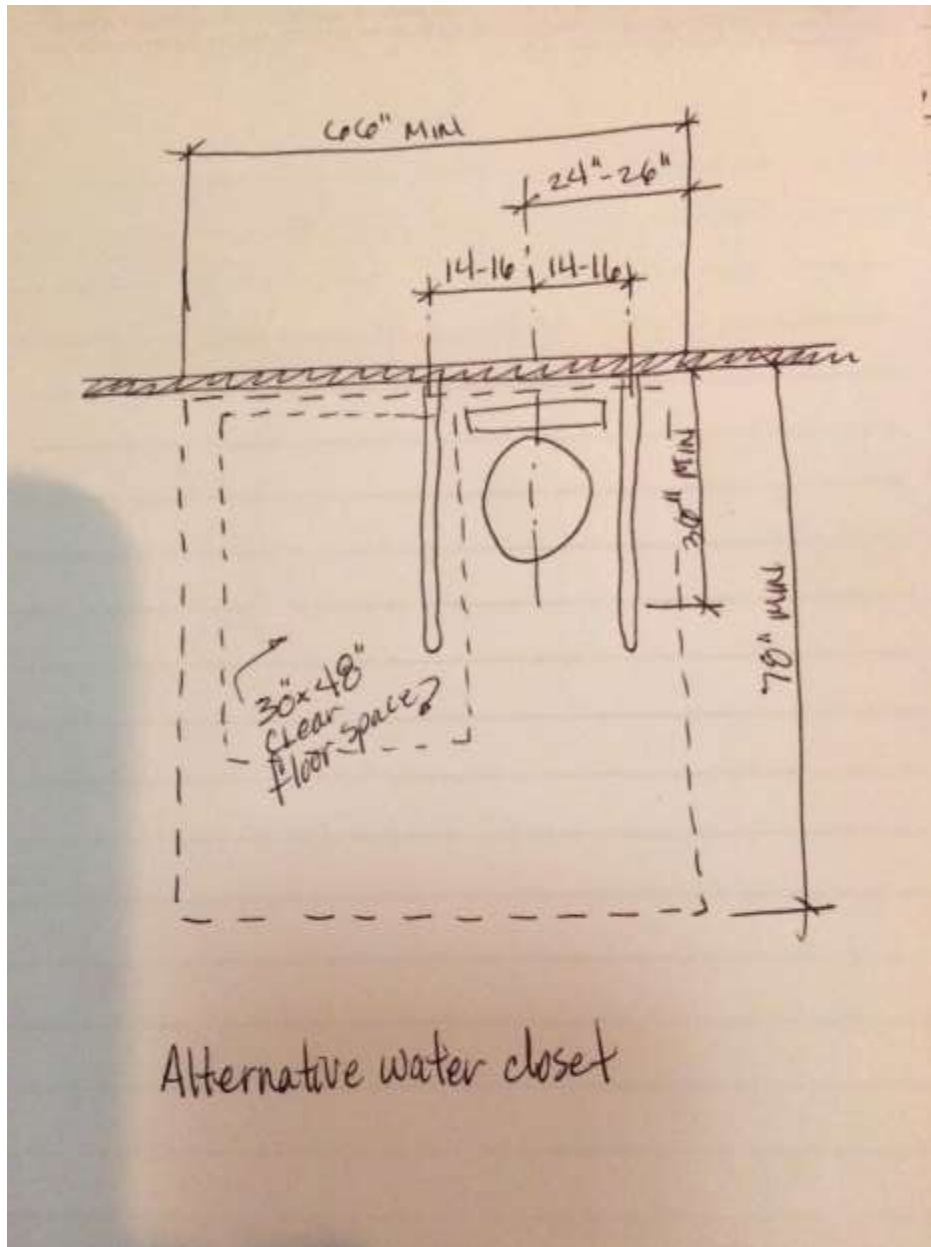 66" MIN
24"-26"
14-16 14-16
36" MIN
78" MIN
30"x48"
clear
floor space?
Alternative water closet